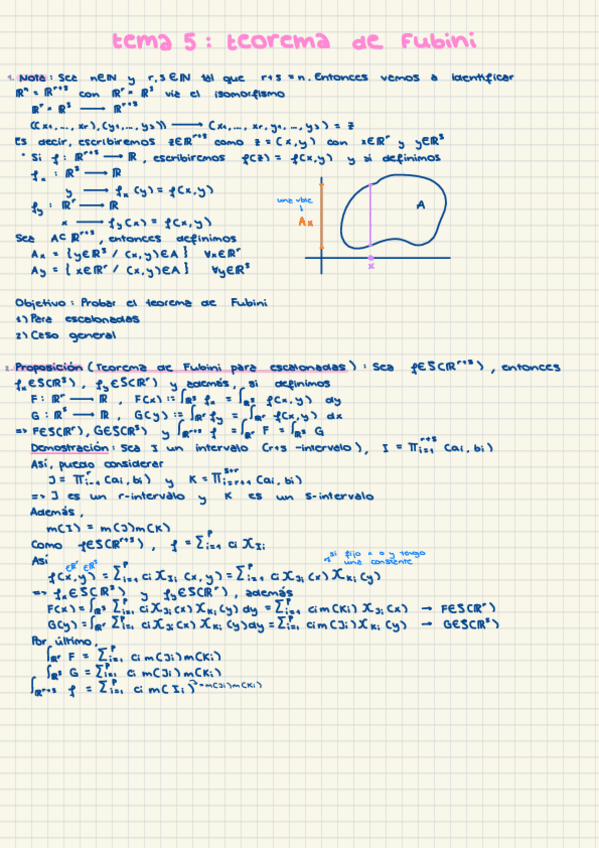 tema 5: teorema de Fubini
1. Nota: Sea n∈ℕ y r,s∈ℕ tal que r+s=n. Entonces vamos a identificar
ℝⁿ = ℝ^{r+s} con ℝ^r × ℝ^s via el isomorfismo
ℝ^r × ℝ^s → ℝ^{r+s}
((x₁,...,x_r),(y₁,...,y_s)) → (x₁,...,x_r,y₁,...,y_s) = z
Es decir, escribiremos z∈ℝ^{r+s} como z=(x,y) con x∈ℝ^r y y∈ℝ^s
· Si f: ℝ^{r+s} → ℝ, escribiremos f(z) = f(x,y) y si definimos
f_x : ℝ^s → ℝ
y → f_x(y) = f(x,y)
f_y : ℝ^r → ℝ
x → f_y(x) = f(x,y)
Sea A⊂ℝ^{r+s}, entonces definimos
A_x = {y∈ℝ^s / (x,y)∈A} ∀x∈ℝ^r
A_y = {x∈ℝ^r / (x,y)∈A} ∀y∈ℝ^s
A_x
A
x
Objetivo: Probar el teorema de Fubini
1) Para escalonadas
2) Caso general
2. Proposición (Teorema de Fubini para escalonadas): Sea f∈S(ℝ^{r+s}), entonces
f_x∈S(ℝ^s), f_y∈S(ℝ^r) y además, si definimos
F: ℝ^r → ℝ, F(x) := ∫_{ℝ^s} f_x = ∫_{ℝ^s} f(x,y) dy
G: ℝ^s → ℝ, G(y) := ∫_{ℝ^r} f_y = ∫_{ℝ^r} f(x,y) dx
=> F∈S(ℝ^r), G∈S(ℝ^s) y ∫_{ℝ^{r+s}} f = ∫_{ℝ^r} F = ∫_{ℝ^s} G
Demostración: Sea I un intervalo (r+s-intervalo), I = ∏_{i=1}^{r+s} (ai, bi)
Así, puedo considerar
J = ∏_{i=1}^{r} (ai, bi) y K = ∏_{i=r+1}^{s+r} (ai, bi)
=> J es un r-intervalo y K es un s-intervalo
Además,
m(I) = m(J)m(K)
Como f∈S(ℝ^{r+s}), f = ∑_{i=1}^{p} ci χ_{Ii}
Así
∈ℝ^r ∈ℝ^s
si fijo x o y tengo
una constante
f(x,y) = ∑_{i=1}^{p} ci χ_{Ii}(x,y) = ∑_{i=1}^{p} ci χ_{Ji}(x) χ_{Ki}(y)
=> f_x∈S(ℝ^s) y f_y∈S(ℝ^r), además
F(x) = ∫_{ℝ^s} ∑_{i=1}^{p} ci χ_{Ji}(x) χ_{Ki}(y) dy = ∑_{i=1}^{p} ci m(Ki) χ_{Ji}(x) → F∈S(ℝ^r)
G(y) = ∫_{ℝ^r} ∑_{i=1}^{p} ci χ_{Ji}(x) χ_{Ki}(y) dy = ∑_{i=1}^{p} ci m(Ji) χ_{Ki}(y) → G∈S(ℝ^s)
Por último,
∫_{ℝ^r} F = ∑_{i=1}^{p} ci m(Ji) m(Ki)
∫_{ℝ^s} G = ∑_{i=1}^{p} ci m(Ji) m(Ki)
∫_{ℝ^{r+s}} f = ∑_{i=1}^{p} ci m(Ii) = m(Ji)m(Ki)